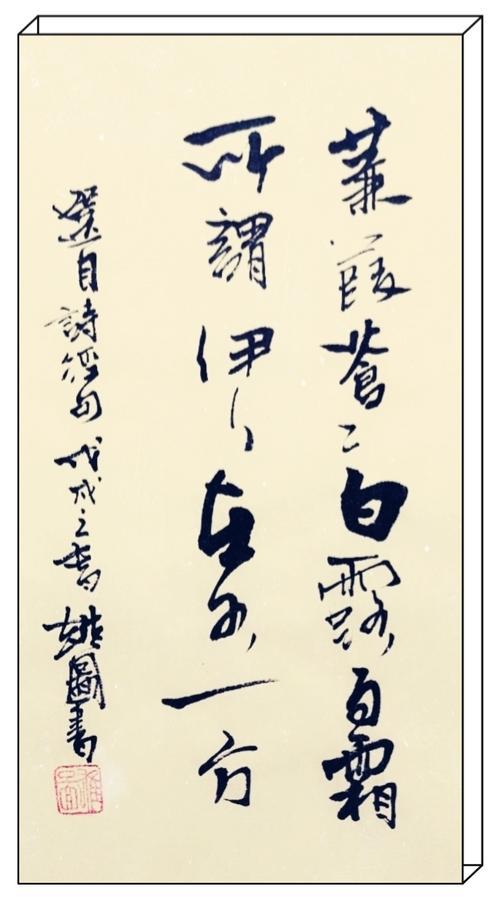 蒹葭蒼〻白露為霜
所謂伊人在水一方
選自詩經句 戊戌之春 雄圖書